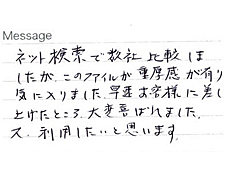 Message
ネット検索で数社比較しま
したが、このファイルが重厚感が有り
気に入りました。早速お客様に差し
上げたところ、大変喜ばれました。
又、利用したいと思います。